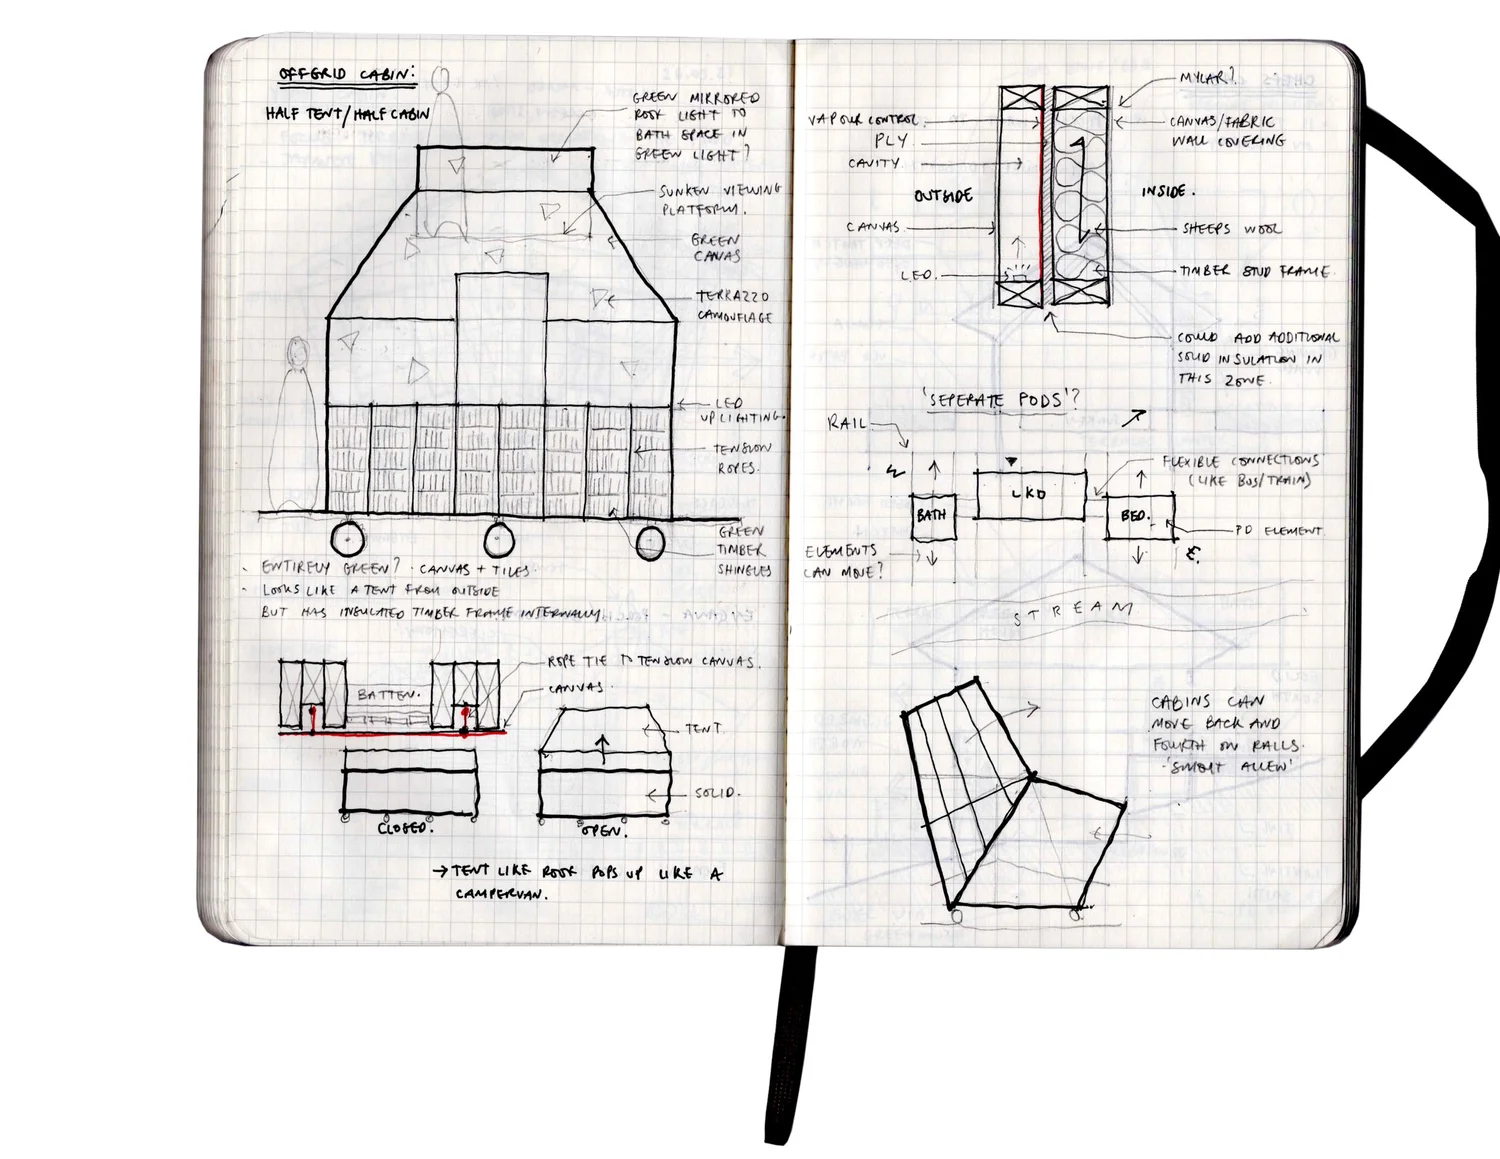 OFFGRID CABIN:
HALF TENT/HALF CABIN
GREEN MIRRORED
ROOF LIGHT TO
BATH SPACE IN
GREEN LIGHT?
SUNKEN VIEWING
PLATFORM.
GREEN
CANVAS
TERRAZZO
CAMOUFLAGE
LED
UPLIGHTING.
TENSION
ROPES.
GREEN
TIMBER
SHINGLES
· ENTIRELY GREEN? · CANVAS + TILES.
· LOOKS LIKE A TENT FROM OUTSIDE
BUT HAS INSULATED TIMBER FRAME INTERNALLY.
ROPE TIE TO TENSION CANVAS.
BATTEN.
CANVAS.
TENT.
SOLID.
CLOSED.
OPEN.
→ TENT LIKE ROOF POPS UP LIKE A
CAMPERVAN.
MYLAR?
VAPOUR CONTROL.
PLY.
CAVITY.
CANVAS/FABRIC
WALL COVERING
OUTSIDE
INSIDE.
CANVAS
SHEEPS WOOL
LED.
TIMBER STUD FRAME.
COULD ADD ADDITIONAL
SOLID INSULATION IN
THIS ZONE.
'SEPERATE PODS'?
RAIL
FLEXIBLE CONNECTIONS
(LIKE BUS/TRAIN)
LKD
BATH
BED.
PD ELEMENT.
ELEMENTS
CAN MOVE?
STREAM
CABINS CAN
MOVE BACK AND
FOURTH ON RAILS.